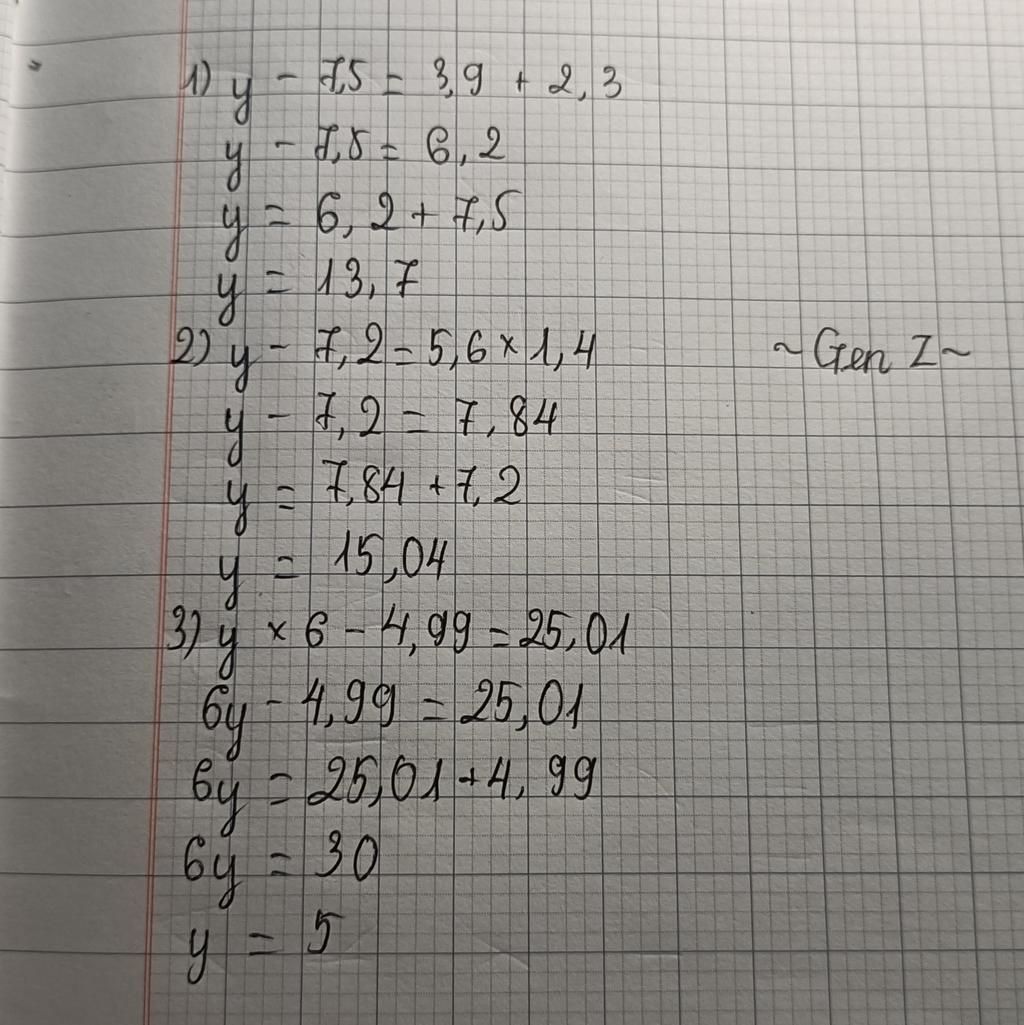 1) y - 7,5 = 3,9 + 2,3
y - 7,5 = 6,2
y = 6,2 + 7,5
y = 13,7
2) y - 7,2 = 5,6 × 1,4
~ Gen Z ~
y - 7,2 = 7,84
y = 7,84 + 7,2
y = 15,04
3) y × 6 - 4,99 = 25,01
6y - 4,99 = 25,01
6y = 25,01 + 4,99
6y = 30
y = 5